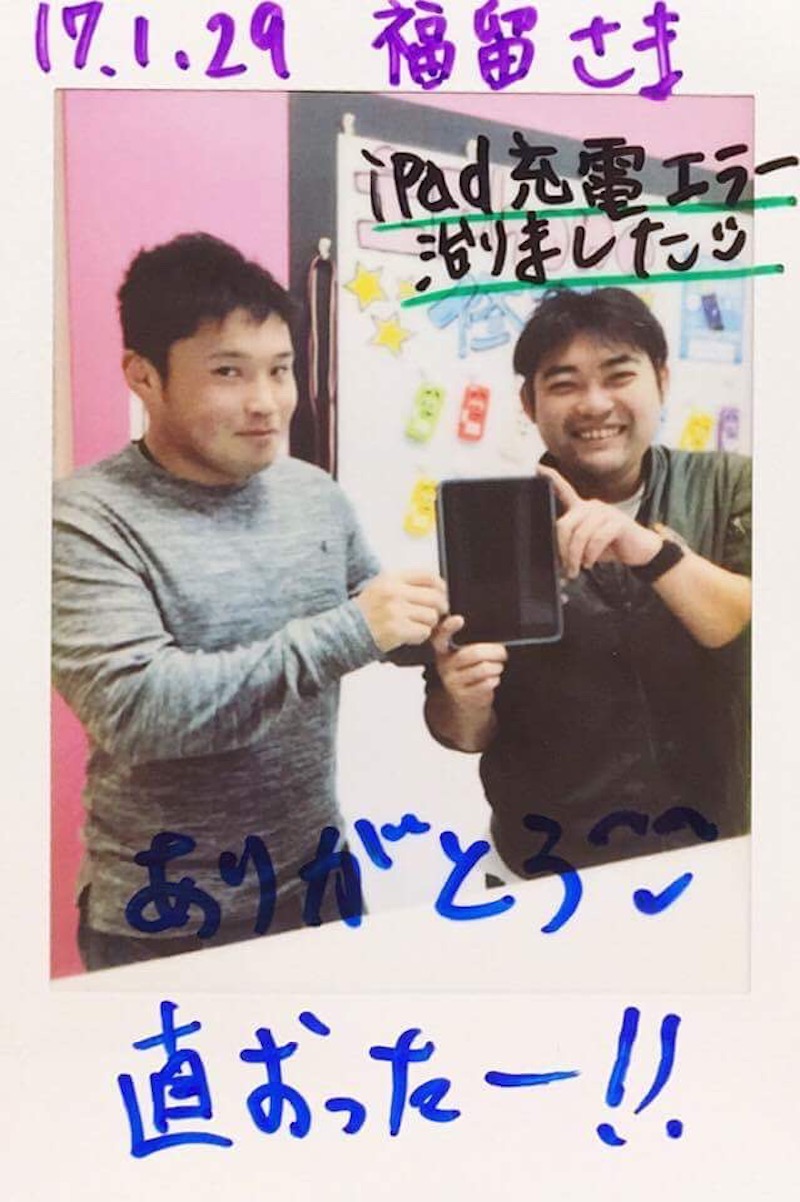 17.1.29 福留さま
iPad充電エラー
治りました
ありがとう
直おったー!!